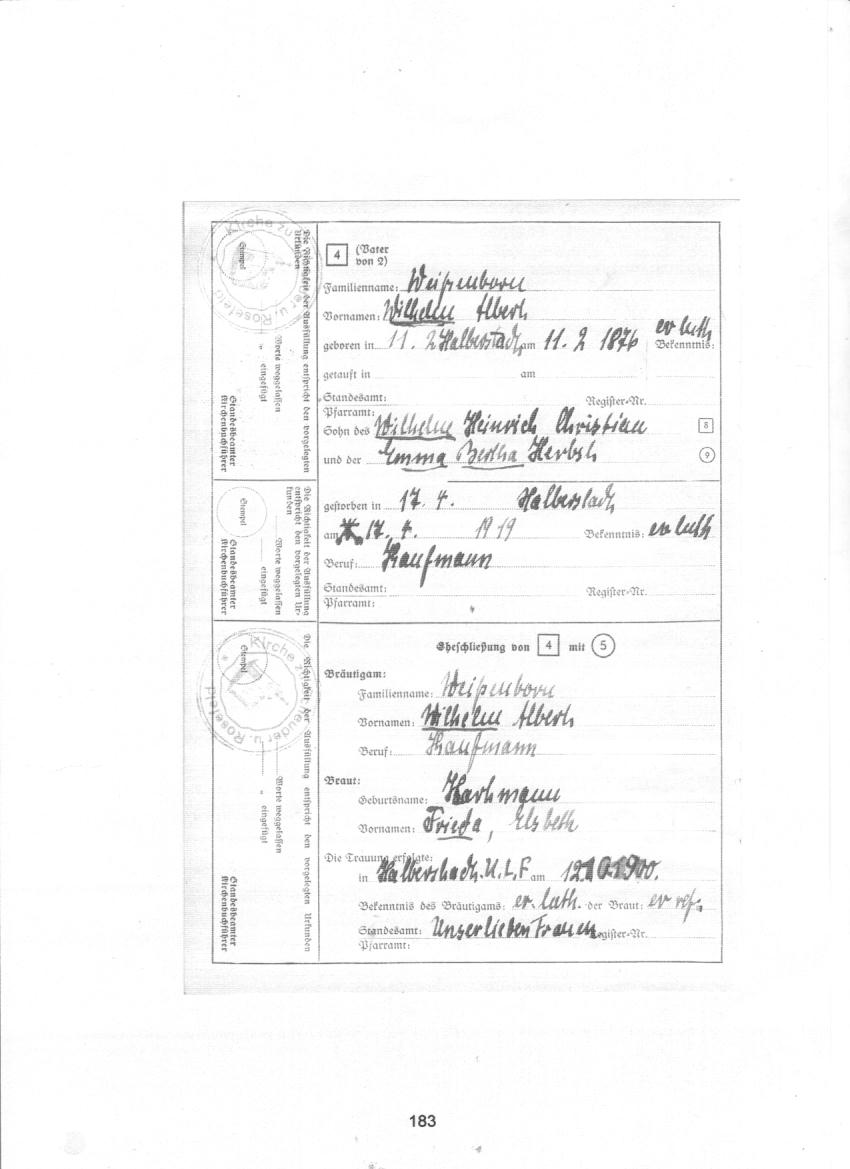 4 (Vater von 2)
Familienname: Weißenborn
Vornamen: Wilhelm Albert
geboren in 11. 2 Halberstadt am 11. 2 1876 Bekenntnis: ev luth
getauft in am
Standesamt: Register-Nr.
Pfarramt:
Sohn des Wilhelm Heinrich Christian 8
und der Emma Bertha Herbst 9
gestorben in 17. 4. Halberstadt
am 17. 4. 1919 Bekenntnis: ev luth
Beruf: Kaufmann
Standesamt: Register-Nr.
Pfarramt:
Eheschließung von 4 mit 5
Bräutigam:
Familienname: Weißenborn
Vornamen: Wilhelm Albert
Beruf: Kaufmann
Braut:
Geburtsname:
Vornamen: Frieda, Elsbeth
Die Trauung erfolgte:
in Halberstadt. U. L. F am 12.10.1900.
Bekenntnis des Bräutigams: ev. luth. der Braut: ev ref.
Standesamt: Unser lieben Frauen Register-Nr.
Pfarramt:
Die Richtigkeit der Ausfüllung entspricht den vorgelegten Urkunden
Worte weggelassen
" eingefügt
Standesbeamter
Kirchenbuchführer
Stempel
Kirche zu
u. Rosefeld
Die Richtigkeit der Ausfüllung entspricht den vorgelegten Urkunden
Worte weggelassen
eingefügt
Standesbeamter
Kirchenbuchführer
Stempel
Die Richtigkeit der Ausfüllung entspricht den vorgelegten Urkunden
Worte weggelassen
" eingefügt
Standesbeamter
Kirchenbuchführer
Stempel
Kirche
u. Rosefeld
183